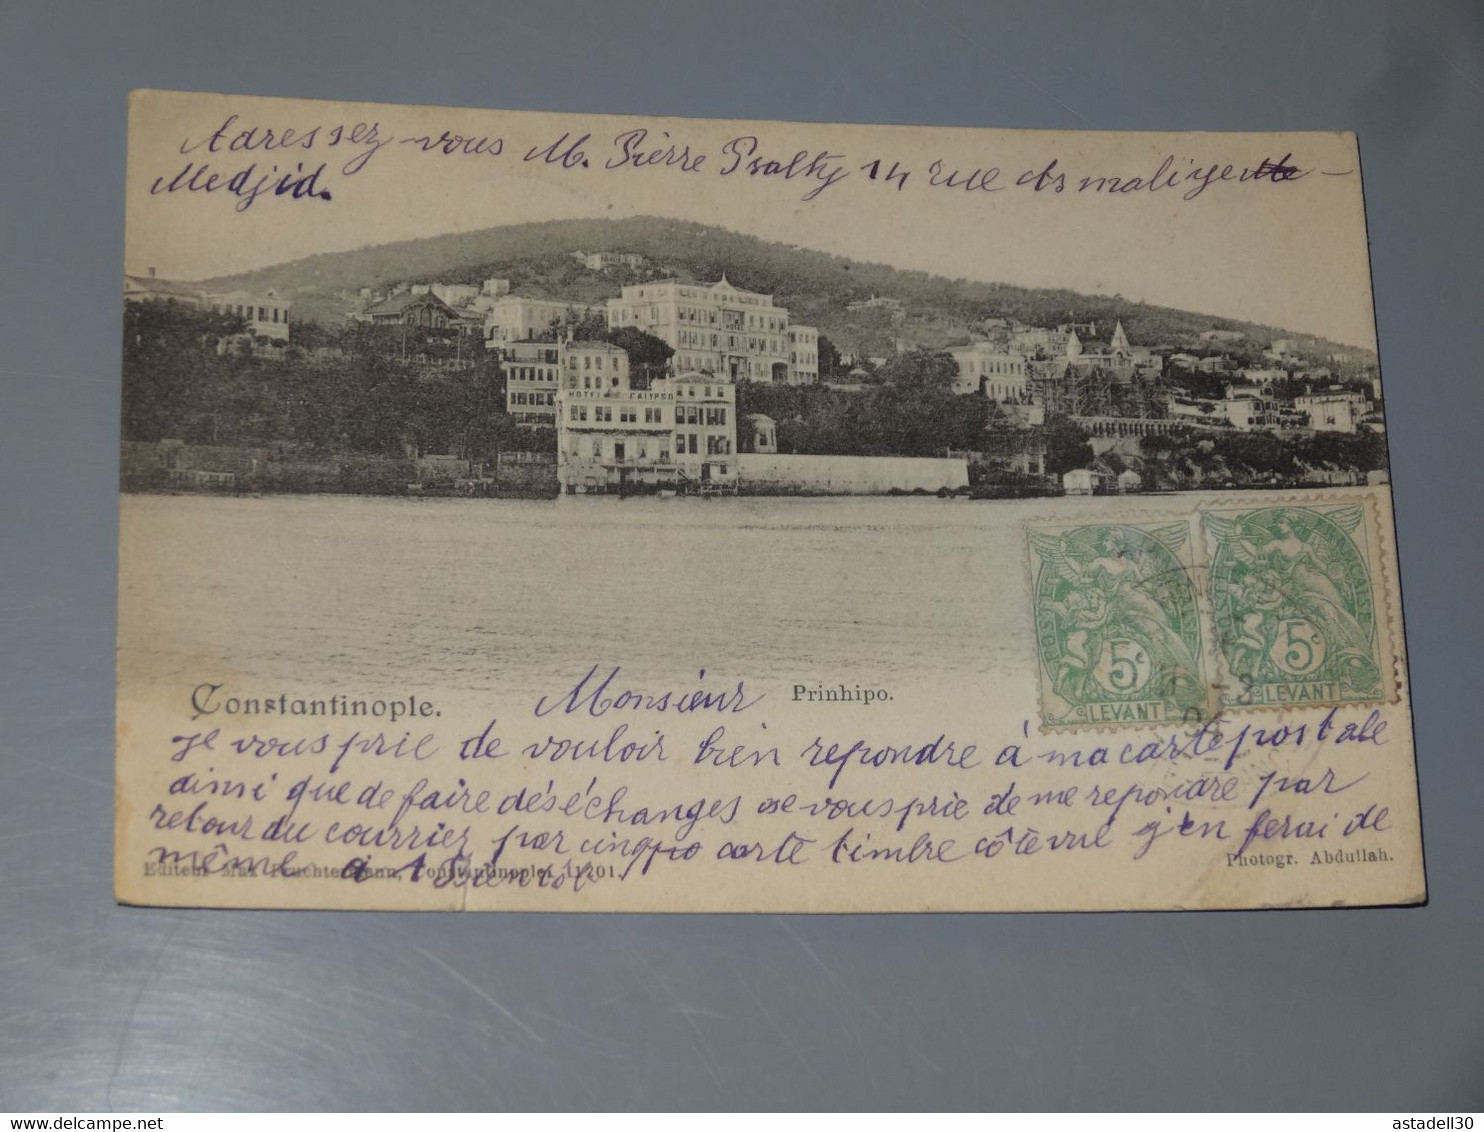 Adressez-vous M. Pierre Psalty 14 rue ets maliye
Medjid.
HOTEL
HOTEL CALYPSO
Constantinople.
Monsieur
Prinhipo.
POSTE FRANÇAISE
5c
LEVANT
POSTE FRANÇAISE
5c
LEVANT
je vous prie de vouloir bien repondre à ma carte postale
ainsi que de faire dés échanges je vous prie de me repondre par
retour du courrier par cinq carte timbre côte vue j'en ferai de
même à Bientôt
Editeur Max Fruchtermann, Constantinople, 11201.
Photogr. Abdullah.
astadell30